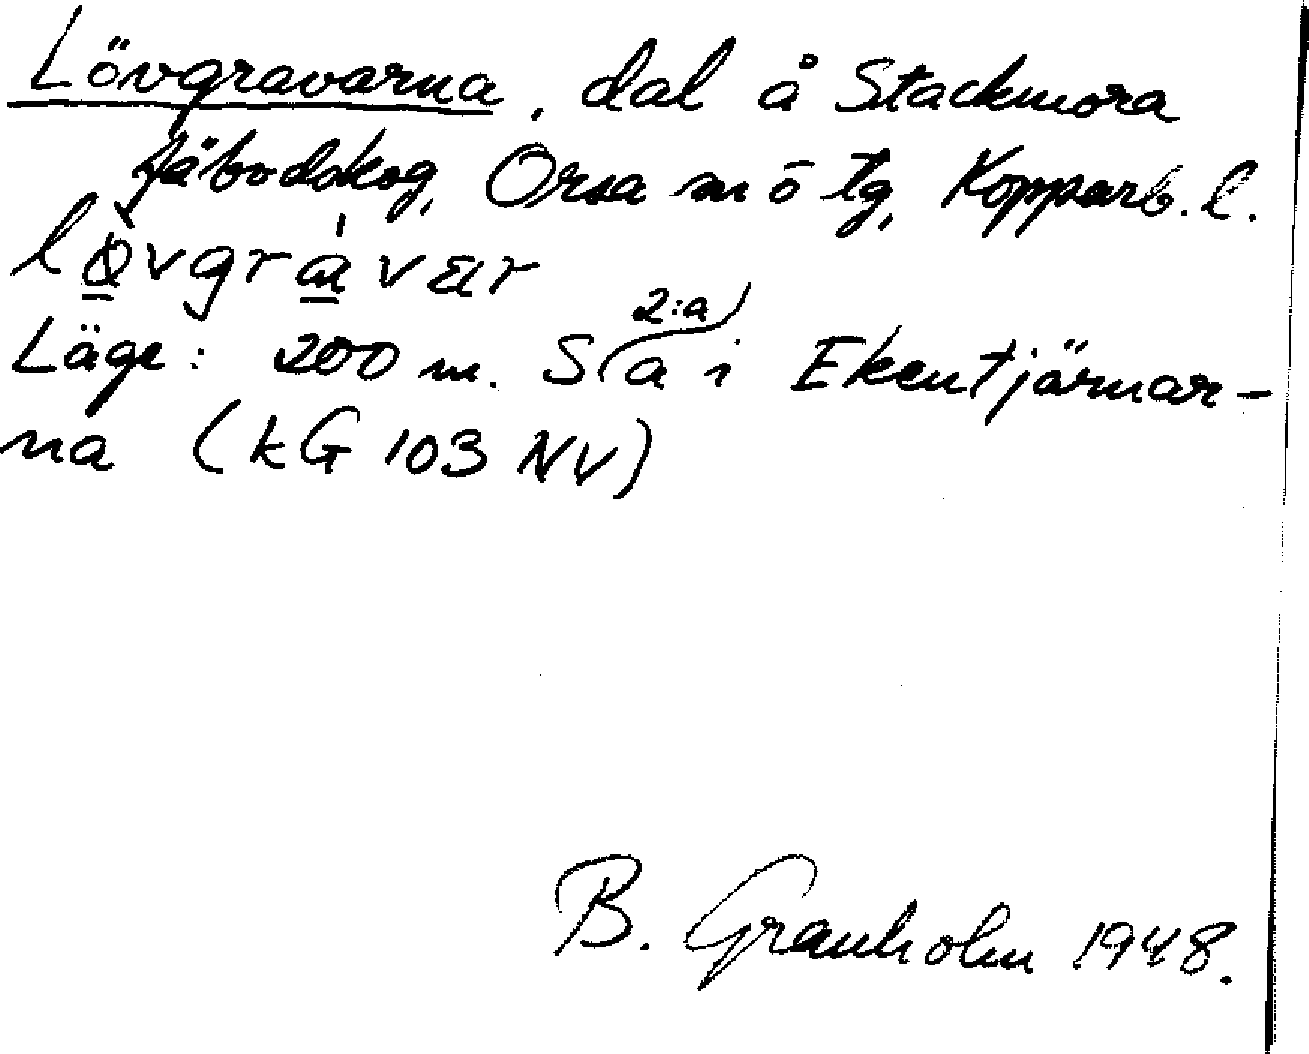 Lövgravarna, dal å Stackmora
fäbodskog, Orsa sn ö tg, Kopparb. l.
Läge: 200 m. S (a 2:a) i Ekentjärnar-
na (kG 103 NV)
B. Granholm 1948.